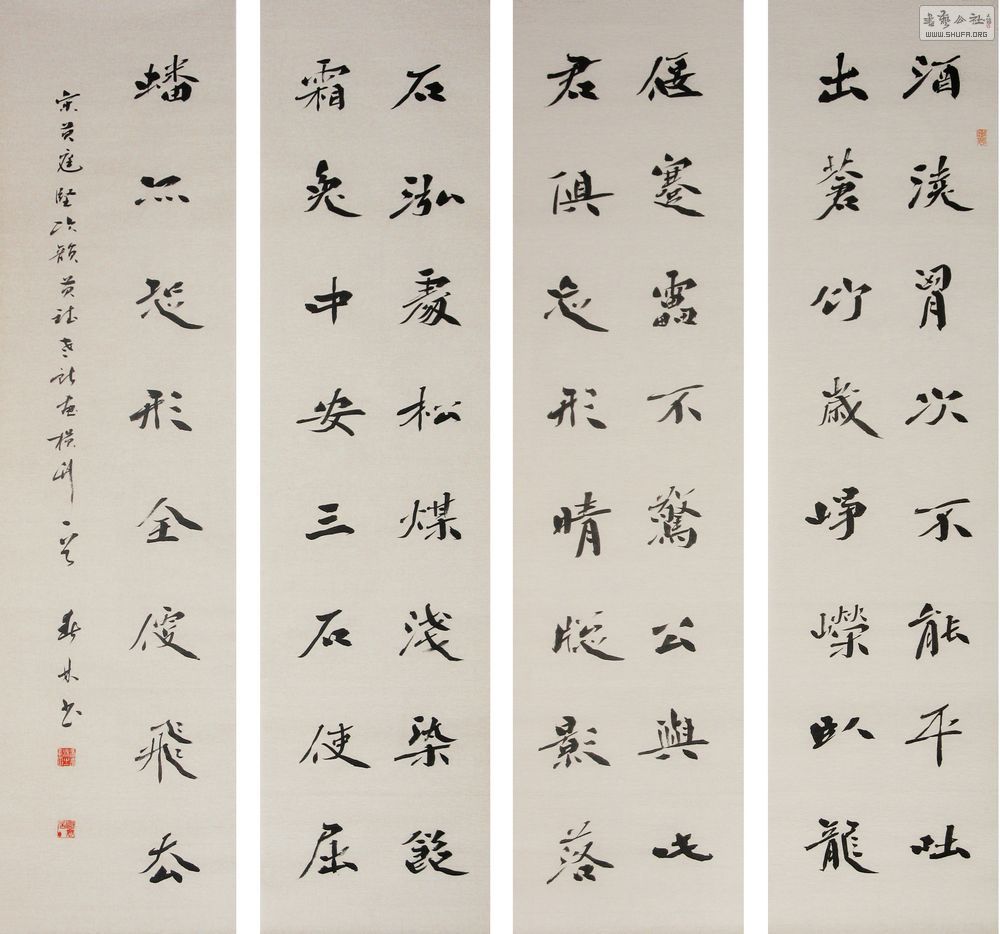 書藝公社
WWW.SHUFA.ORG
酒澆胷次不能平吐
出蒼竹歲崢嶸臥龍
偃蹇靁不驚公與此
君俱忘形晴牕影落
石泓處松煤淺染飽
霜兔中安三石使屈
蟠亦恐形全便飛去
宋黃庭堅次韻黃斌老所畫橫竹一首 林書